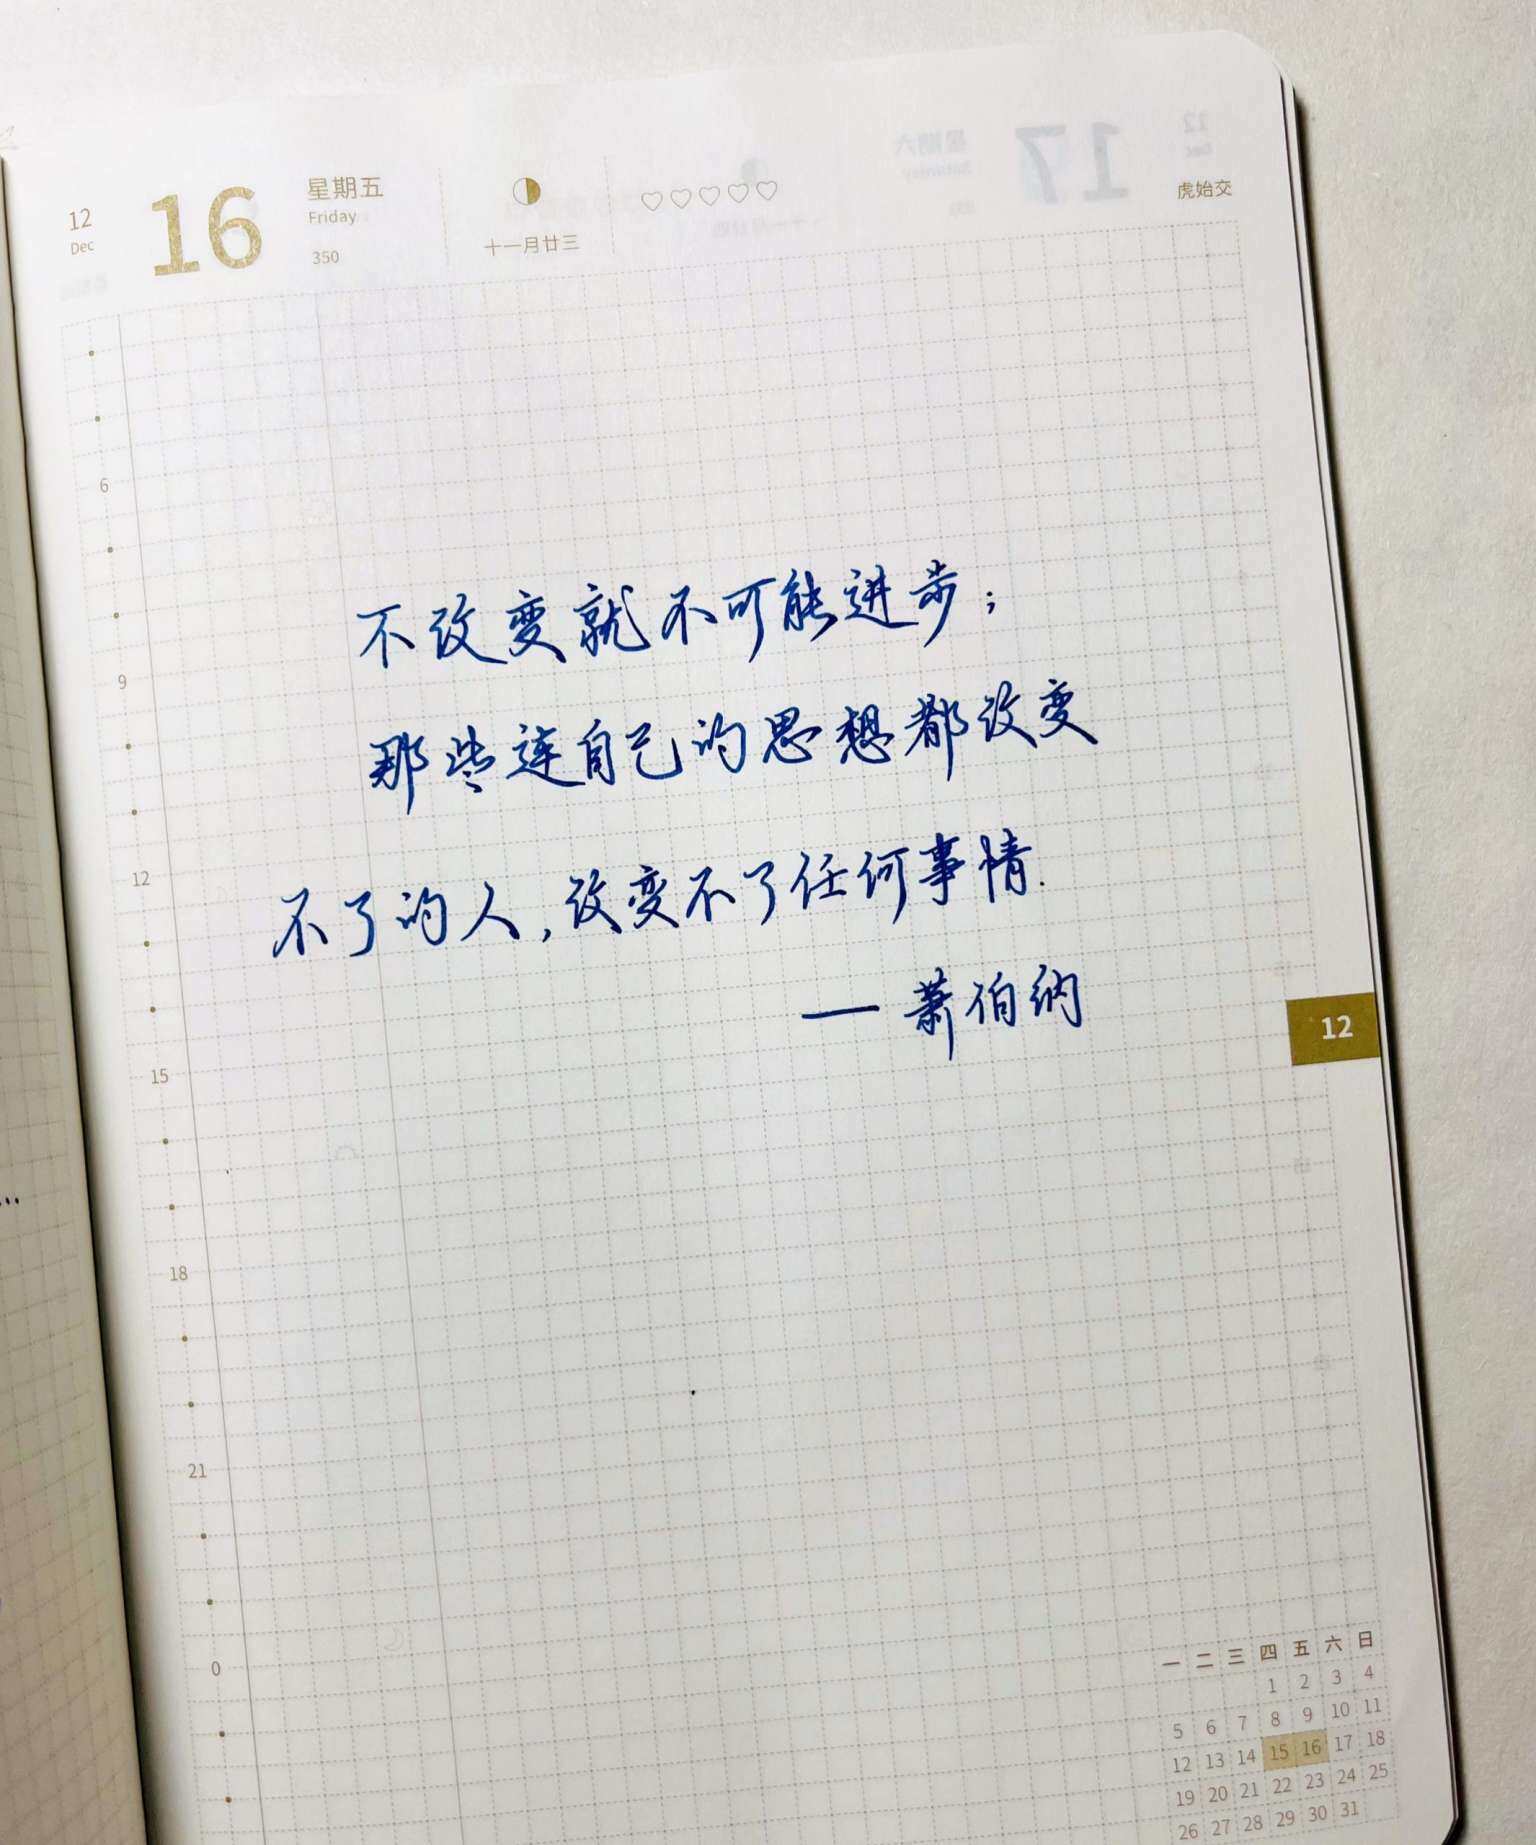 12
Dec
16
星期五
Friday
350
十一月廿三
虎始交
6
不改变就不可能进步；
9
那些连自己的思想都改变
12
不了的人,改变不了任何事情.
— 萧伯纳
12
15
18
21
0
一 二 三 四 五 六 日
1 2 3 4
5 6 7 8 9 10 11
12 13 14 15 16 17 18
19 20 21 22 23 24 25
26 27 28 29 30 31